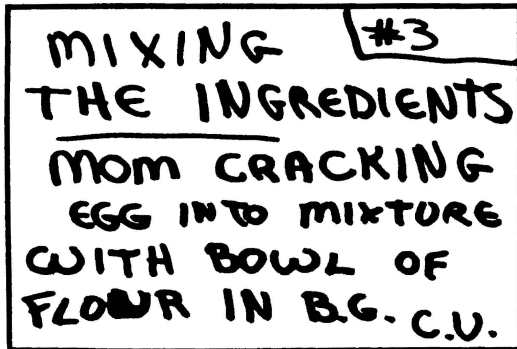 MIXING #3
THE INGREDIENTS
MOM CRACKING
EGG INTO MIXTURE
WITH BOWL OF
FLOUR IN B.G. C.U.